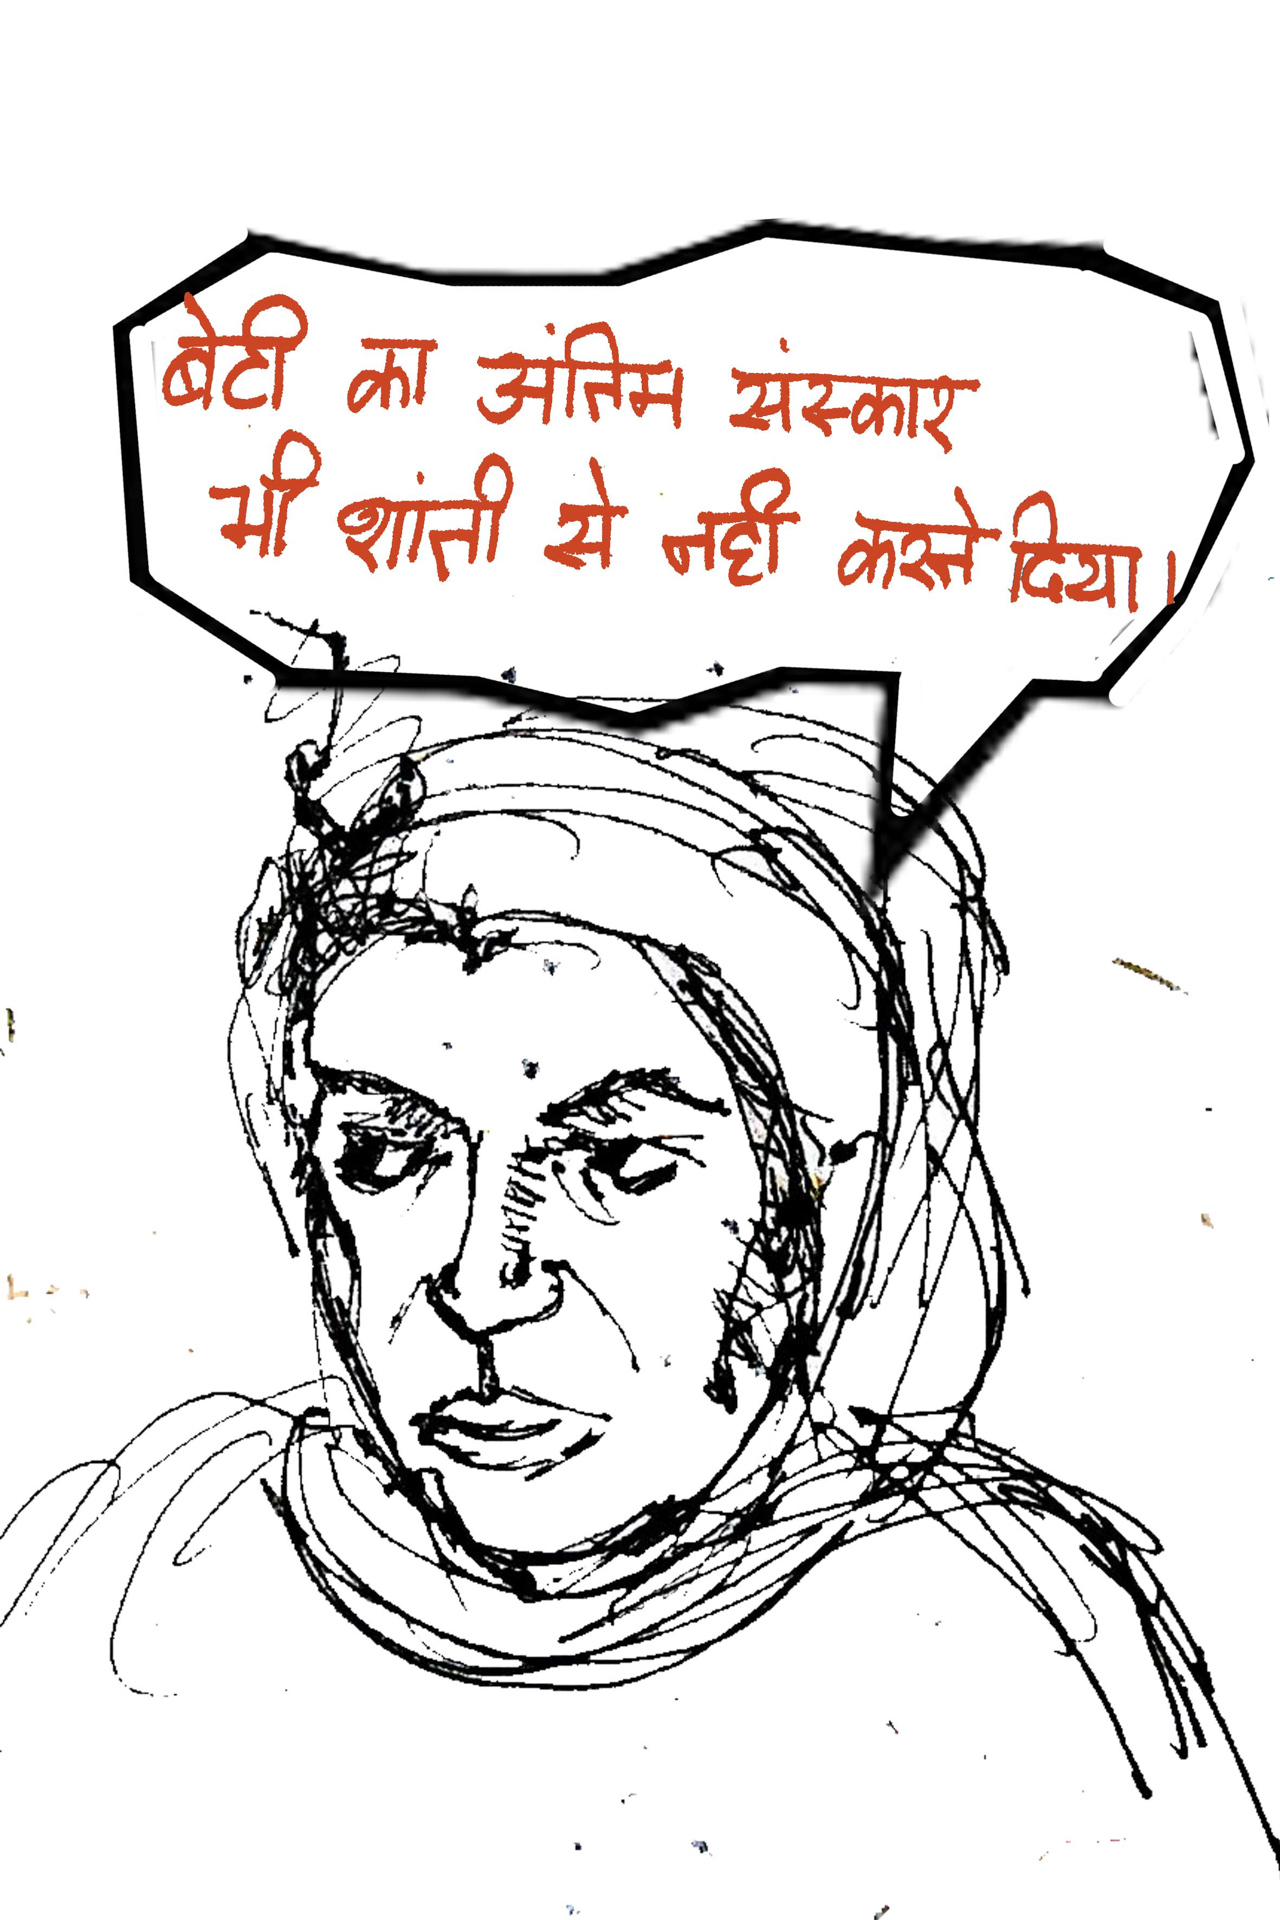 बेटी का अंतिम संस्कार
भी शांती से नही करने दिया।